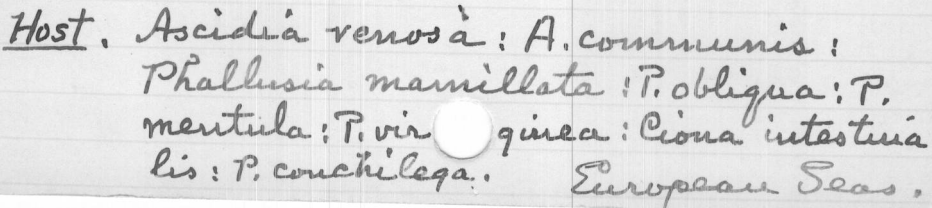 Host. Ascidia venosa: A. communis:
Phallusia mamillata: P. obliqua: P.
mentula: P. virginea: Ciona intestina
lis: P. conchilega. European Seas.